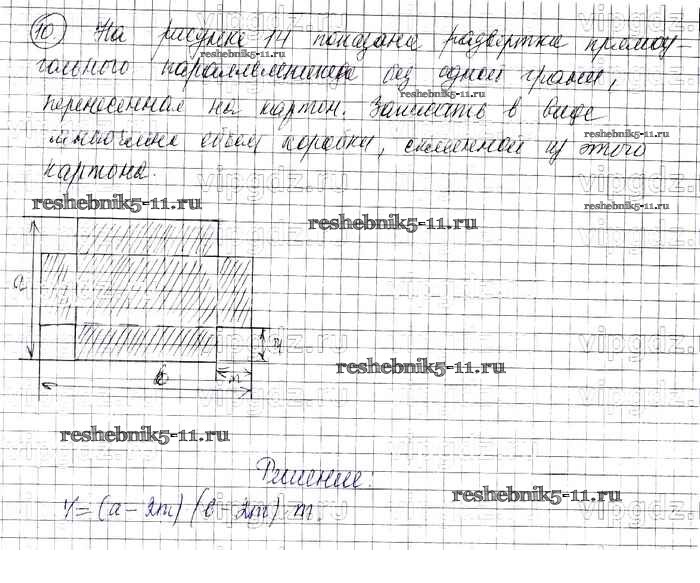 10 На рисунке 14 показана развертка прямоу-
гольного параллелепипеда без одной грани,
reshebnik5-11.ru
перенесенная на картон. Запишите в виде
reshebnik5-11.ru
многочлена объем коробки, склеенной из этого
картона.
reshebnik5-11.ru
reshebnik5-11.ru
reshebnik5-11.ru
a
vipgdz.ru
m
b
reshebnik5-11.ru
reshebnik5-11.ru
Решение:
reshebnik5-11.ru
V = (a - 2m) (b - 2m) · m.